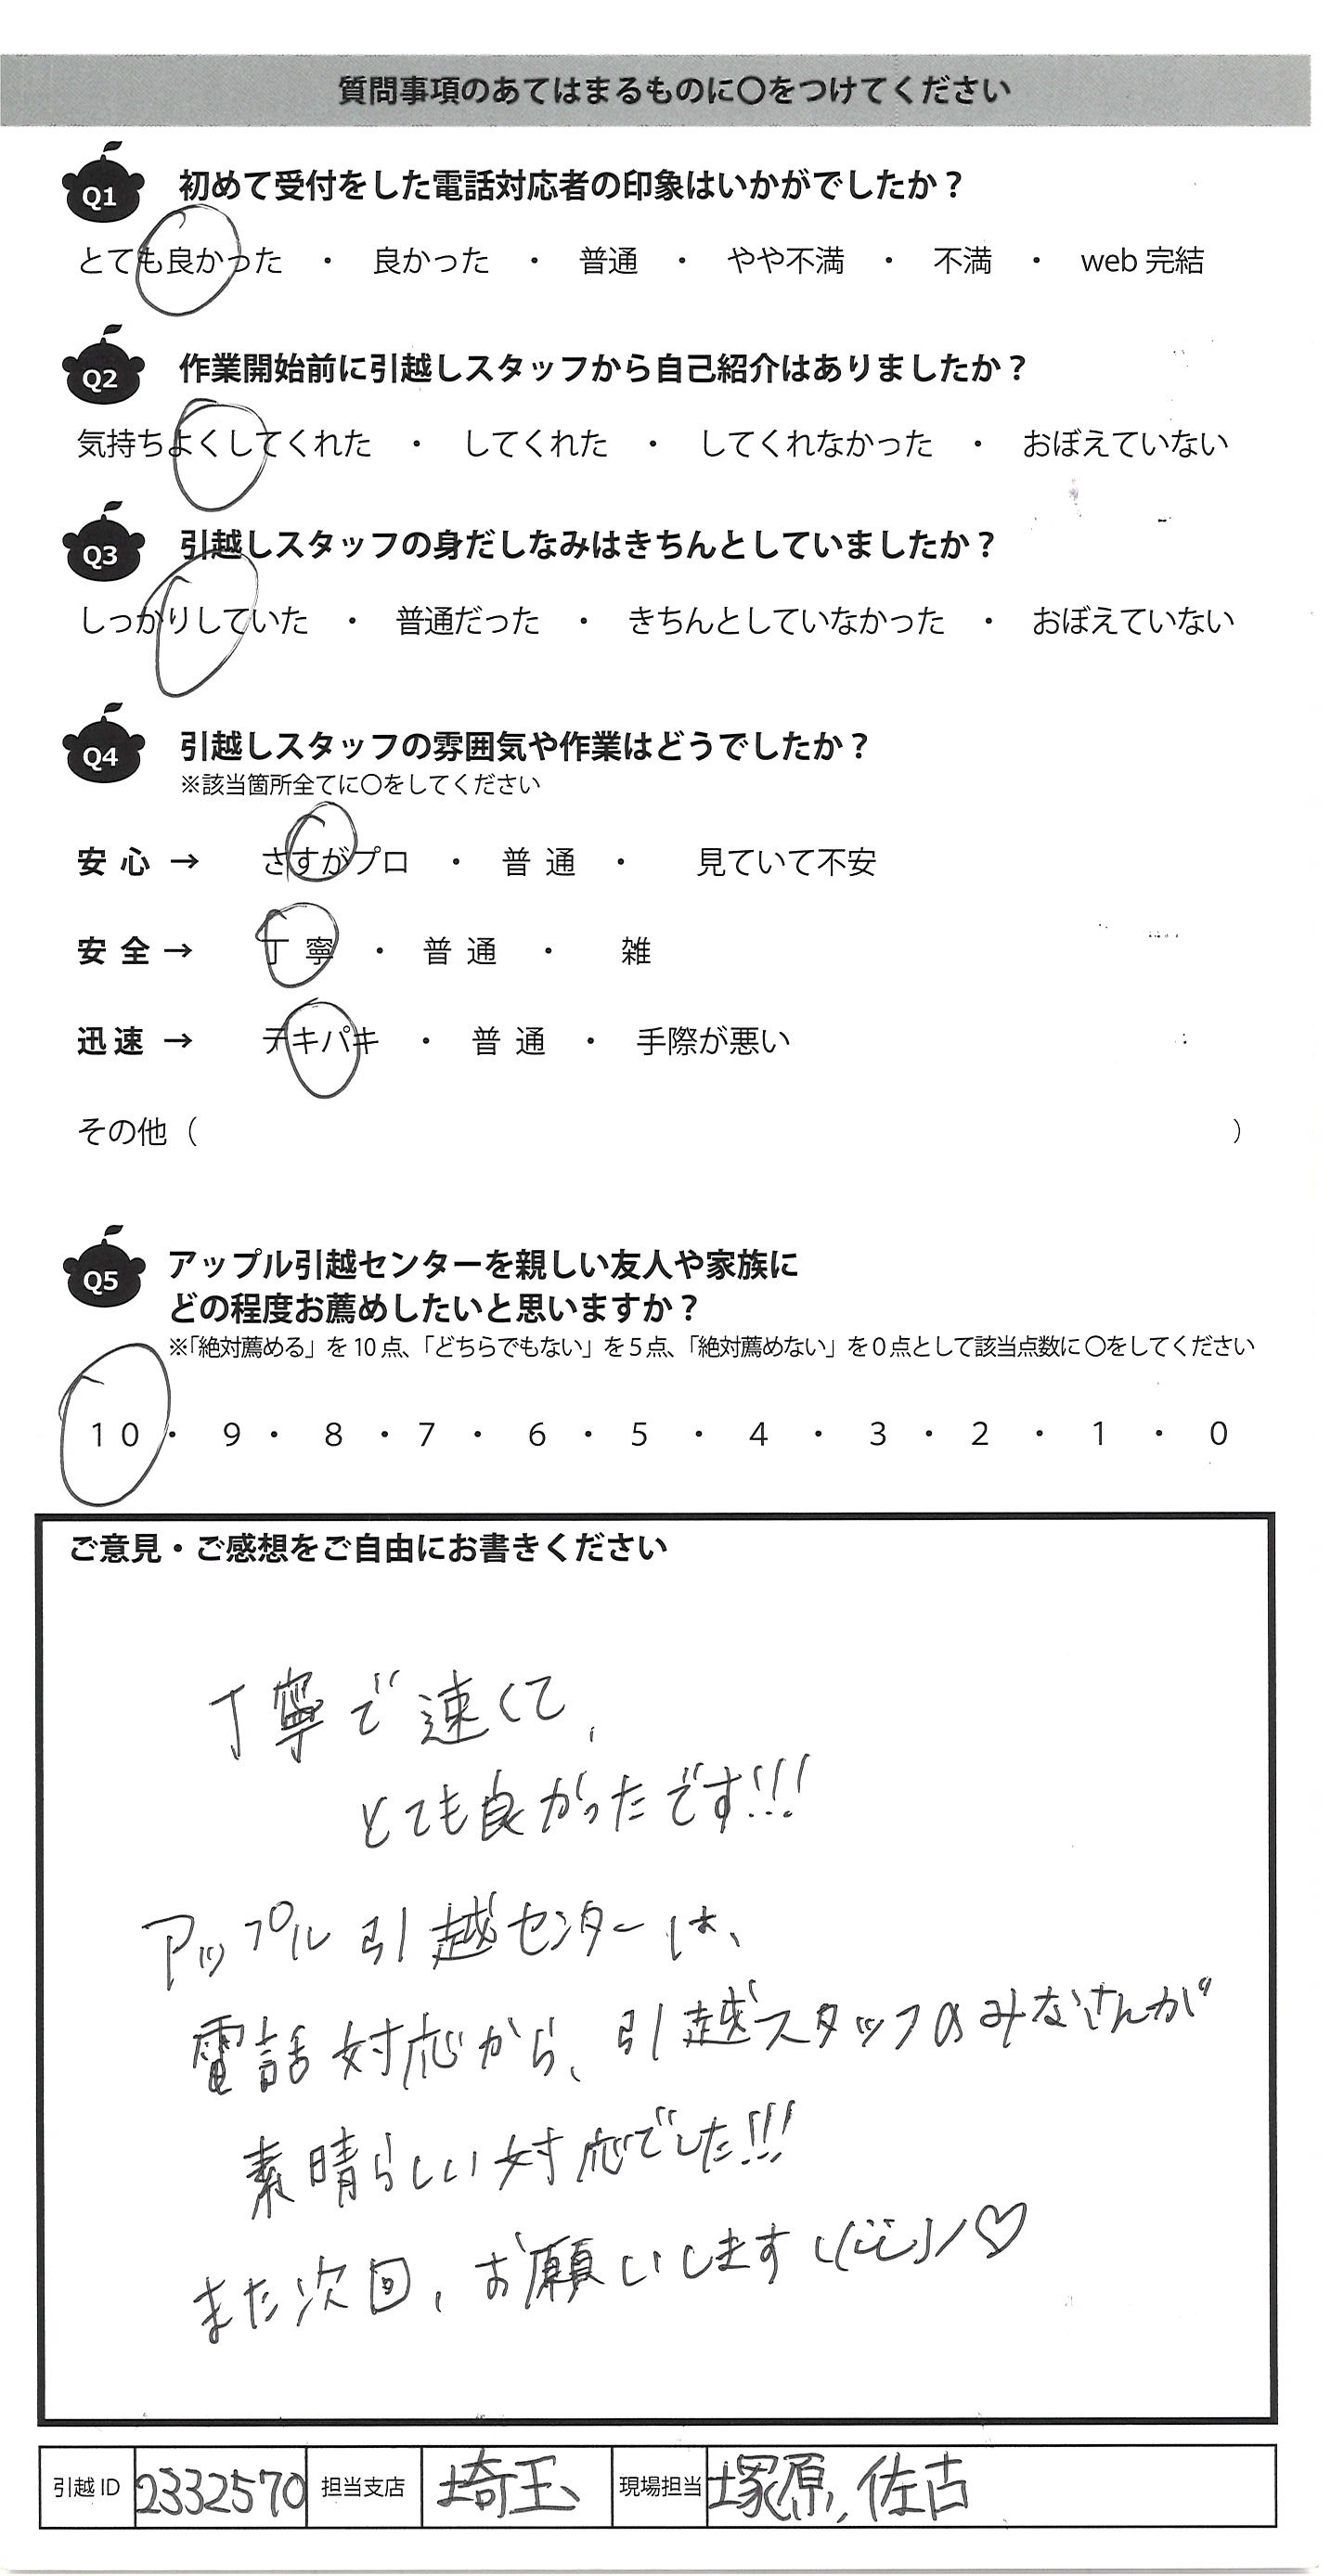 質問事項のあてはまるものに〇をつけてください
Q1 初めて受付をした電話対応者の印象はいかがでしたか？
とても良かった ・ 良かった ・ 普通 ・ やや不満 ・ 不満 ・ web 完結
Q2 作業開始前に引越しスタッフから自己紹介はありましたか？
気持ちよくしてくれた ・ してくれた ・ してくれなかった ・ おぼえていない
Q3 引越しスタッフの身だしなみはきちんとしていましたか？
しっかりしていた ・ 普通だった ・ きちんとしていなかった ・ おぼえていない
Q4 引越しスタッフの雰囲気や作業はどうでしたか？
※該当箇所全てに〇をしてください
安心 → さすがプロ ・ 普通 ・ 見ていて不安
安全 → 丁寧 ・ 普通 ・ 雑
迅速 → テキパキ ・ 普通 ・ 手際が悪い
その他（ ）
Q5 アップル引越センターを親しい友人や家族に
どの程度お薦めしたいと思いますか？
※「絶対薦める」を10点、「どちらでもない」を5点、「絶対薦めない」を0点として該当点数に〇をしてください
10 ・ 9 ・ 8 ・ 7 ・ 6 ・ 5 ・ 4 ・ 3 ・ 2 ・ 1 ・ 0
ご意見・ご感想をご自由にお書きください
丁寧で速くて、
とても良かったです!!!
アップル引越センターは、
電話対応から、引越スタッフのみなさんが
素晴らしい対応でした!!!
また次回、お願いします♡
引越ID 2332570 担当支店 埼玉 現場担当 塚原, 佐古